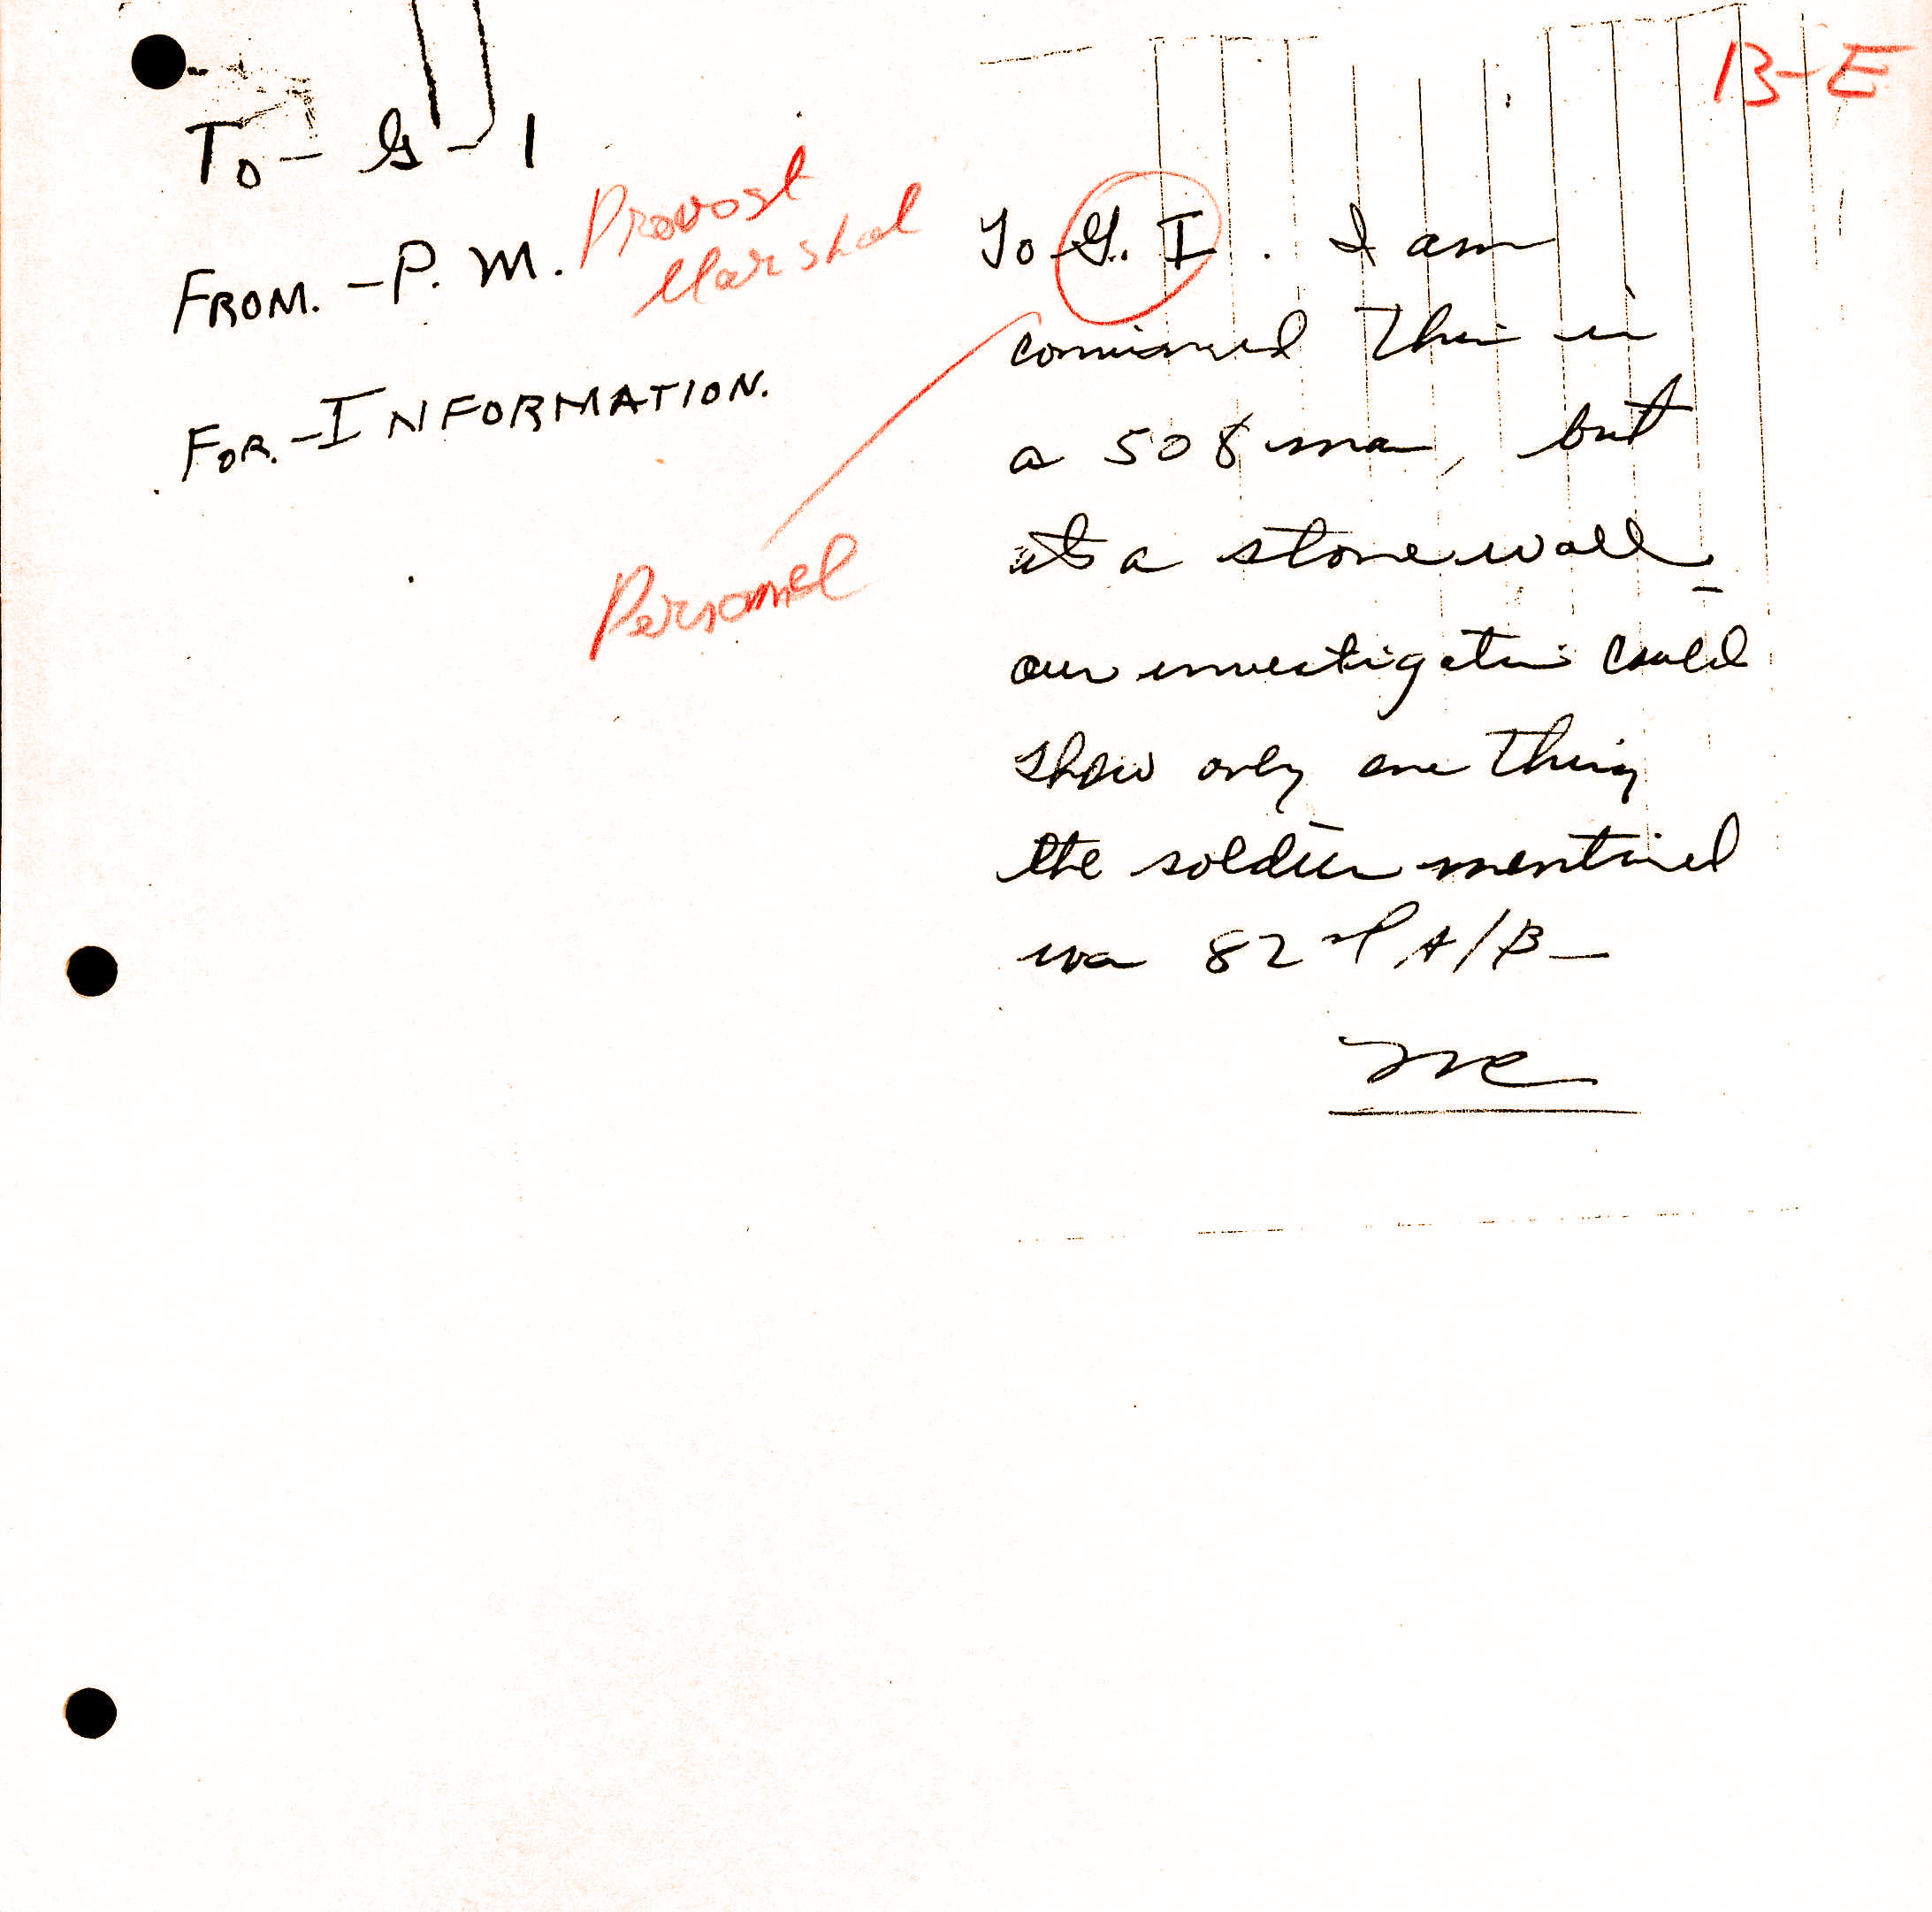 B-E
To - G-1
FROM. - P. M. Provost
Marshal
FOR. - INFORMATION.
Personnel
To G. I. I am
convinced this is
a 508 man, but
its a stone wall -
our investigation could
show only one thing
the soldier mentioned
was 82nd A/B -